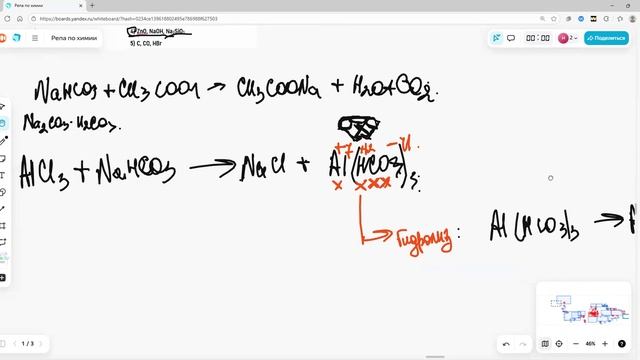 Репа по химии
https://boards.yandex.ru/whiteboard/?hash=0234ce139618802495e786988f627503
Репа по химии
00:00
Поделиться
ZnO, NaOH, Na₂SiO₃
5) C, CO, HBr
NaHCO3 + CH3COOH → CH3COONa + H2O + CO2
Na2CO3 · H2CO3.
AlCl3 + NaHCO3 → NaCl + Al(HCO3)3
Гидролиз: Al(HCO3)3 →
1 / 3
46%